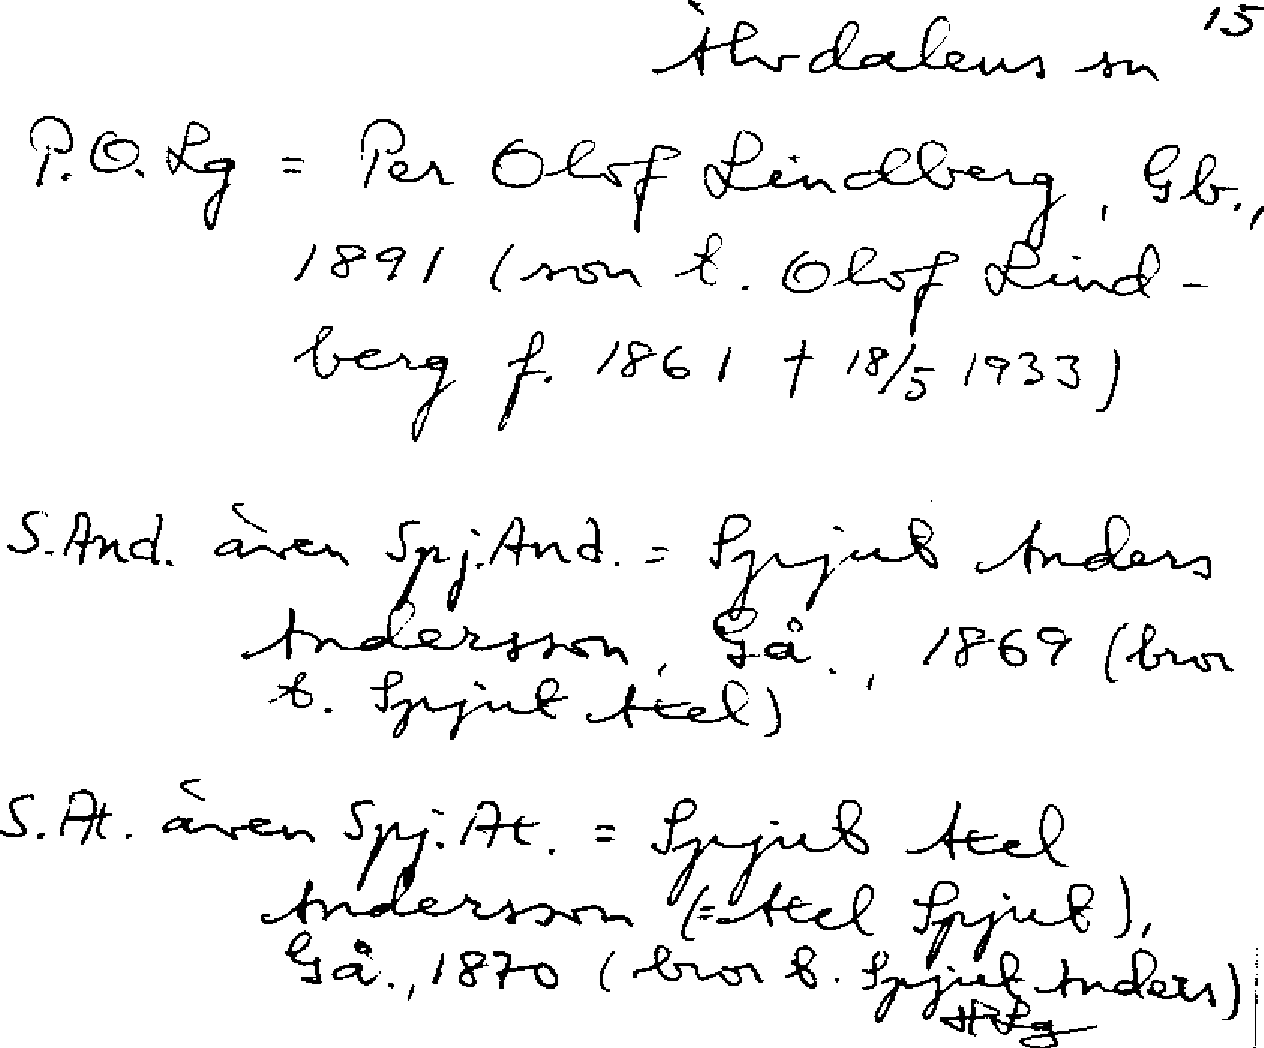 15
Älvdalens sn
P.O. Lg = Per Olof Lindberg, Gb.,
1891 (son t. Olof Lind-
berg f. 1861 † 18/5 1933)
S. And. även Spj. And. = Spjut Anders
Andersson, Gå., 1869 (bror
t. Spjut Axel)
S. Ax. även Spj. Ax. = Spjut Axel
Andersson (= Axel Spjut),
Gå., 1870 (bror t. Spjut Anders)